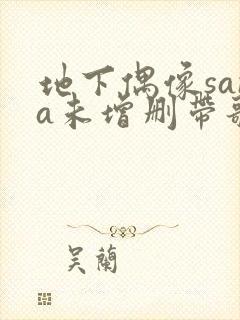 地下偶像sa
a未增删带
吴蘭